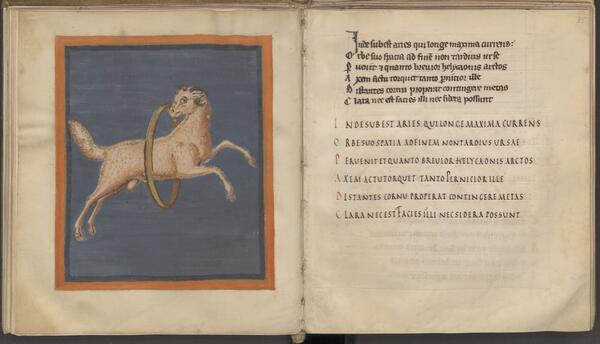 35
Inde subest aries qui longe maxima currens:
Orbe suo spacia ad finē non tardius urse
Puenit & quanto brevior helycaonis arctos
Axem actu torquet tanto pnicior ille
Distantes cornu properat contingere metas
Clara nec est facies illi nec sidera possunt
INDE SUBEST ARIES QUI LONGE MAXIMA CURRENS
ORBE SUO SPATIA AD FINEM NON TARDIUS URSAE
PERUENIT ET QUANTO BREUIOR HELYCAONIS ARCTOS
AXEM ACTU TORQUET TANTO PERNICIOR ILLE
DISTANTES CORNU PROPERAT CONTINGERE METAS
CLARA NEC EST FACIES ILLI NEC SIDERA POSSUNT